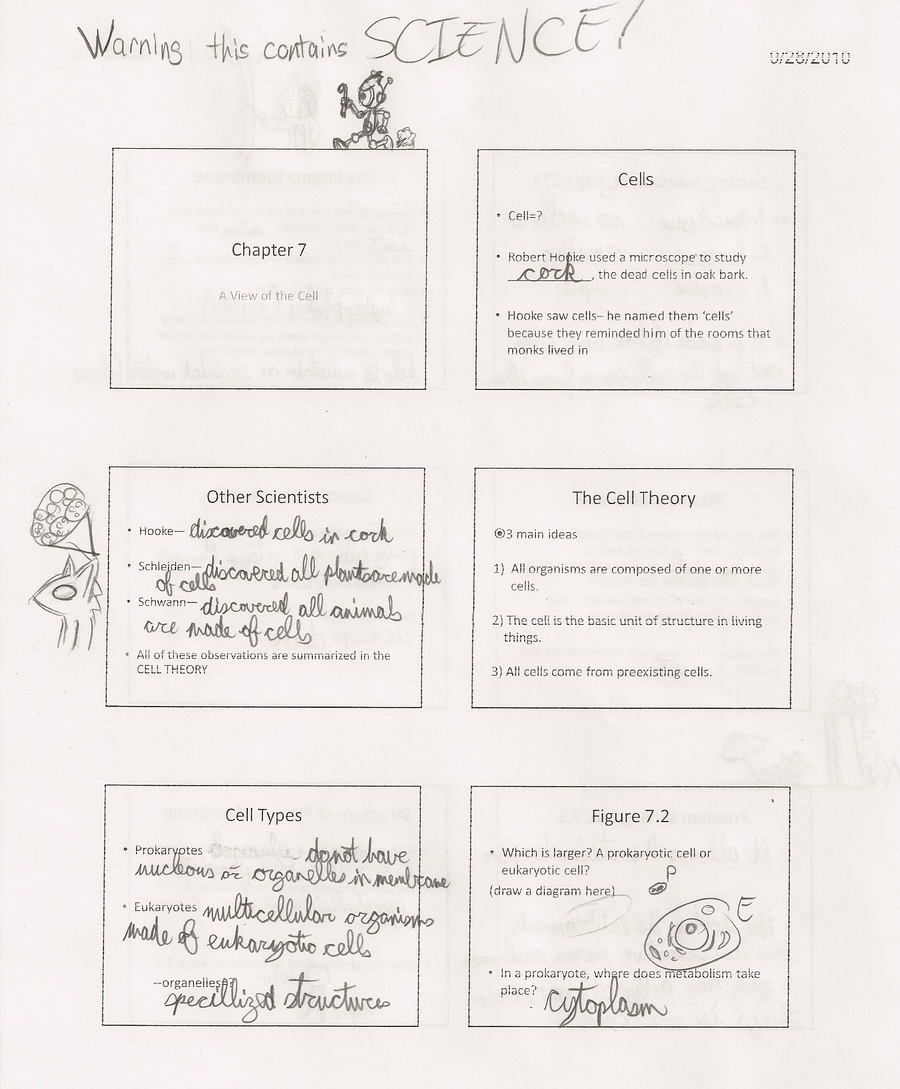 Warning this contains SCIENCE!
9/28/2010
Chapter 7
A View of the Cell
Cells
• Cell=?
• Robert Hooke used a microscope to study
cork, the dead cells in oak bark.
• Hooke saw cells– he named them ‘cells’
because they reminded him of the rooms that
monks lived in
Other Scientists
• Hooke— discovered cells in cork
• Schleiden— discovered all plants are made
of cells
• Schwann— discovered all animals
are made of cells
• All of these observations are summarized in the
CELL THEORY
The Cell Theory
3 main ideas
1) All organisms are composed of one or more
cells.
2) The cell is the basic unit of structure in living
things.
3) All cells come from preexisting cells.
Cell Types
• Prokaryotes - do not have
nucleous or organelles in membrane
• Eukaryotes multicellular organisms
made of eukaryotic cells
--organelles??
specillized structures
Figure 7.2
• Which is larger? A prokaryotic cell or
eukaryotic cell?
(draw a diagram here)
P
E
• In a prokaryote, where does metabolism take
place?
cytoplasm